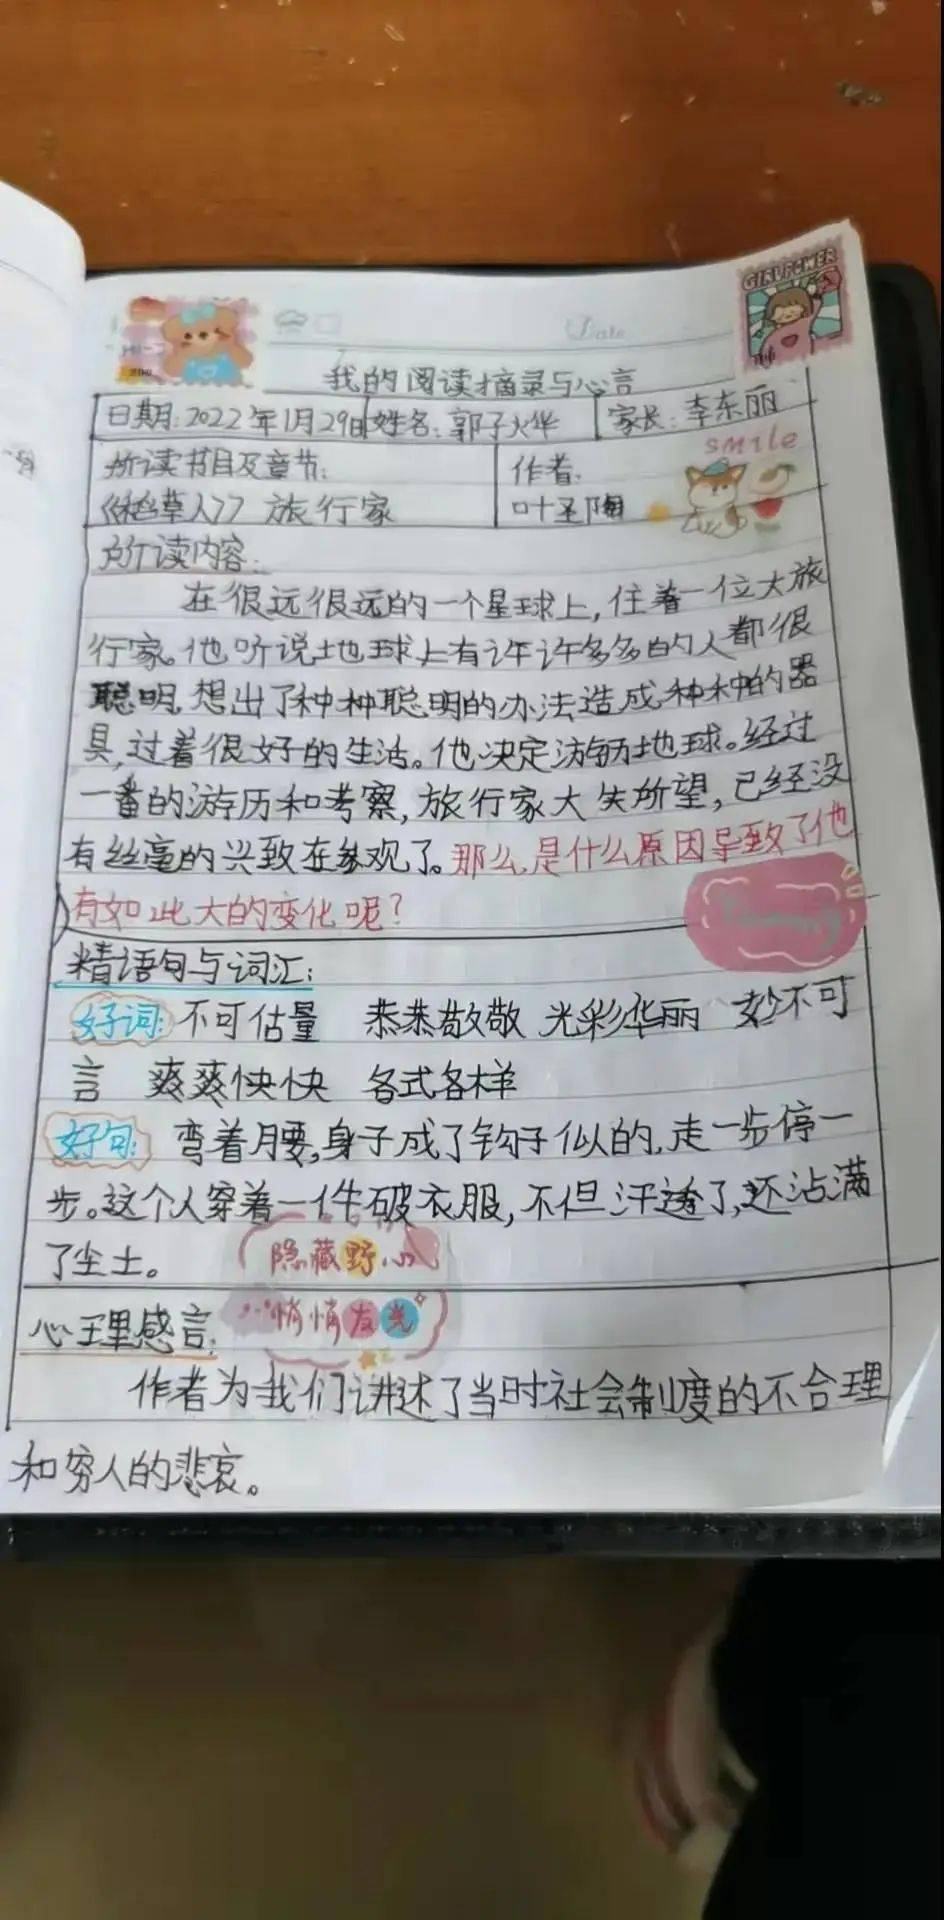 GIRL POWER
Date
我的阅读摘录与心言
日期:2022年1月29日 姓名:郭子火华 家长:李东丽
smile
所读书目及章节: 作者:
《稻草人》 旅行家 叶圣陶
所读内容:
在很远很远的一个星球上,住着一位大旅
行家。他听说地球上有许许多多的人都很
聪明,想出了种种聪明的办法造成种种的器
具,过着很好的生活。他决定游历地球。经过
一番的游历和考察,旅行家大失所望,已经没
有丝毫的兴致在参观了。那么,是什么原因导致了他
有如此大的变化呢?
精语句与词汇:
好词: 不可估量 恭恭敬敬 光彩华丽 妙不可
言 爽爽快快 各式各样
好句: 弯着月要,身子成了钩子似的,走一步停一
步。这个人穿着一件破衣服,不但汗透了,还沾满
了尘土。
隐藏野心
悄悄发光
心理感言:
作者为我们讲述了当时社会制度的不合理
和穷人的悲哀。